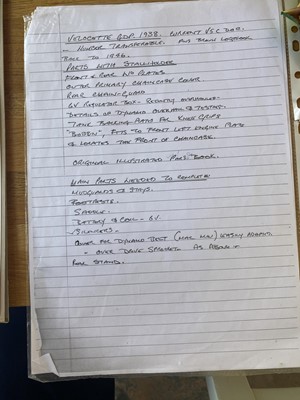 VELOCETTE GDP. 1938. CURRENT V5C DOC.
- NUMBER TRANSFERABLE. PLUS BROWN LOGBOOK
BACK TO 1946.
PARTS WITH STALLHOLDER
FRONT & REAR NO PLATES
OUTER PRIMARY CHAINCASE COVER
REAR CHAIN-GUARD
6V REGULATOR BOX - RECENTLY OVERHAULED
DETAILS OF DYNAMO OVERHAUL & TESTING.
TANK BACKING PLATES FOR KNEE GRIPS
"BOBBIN", FITS TO FRONT LEFT ENGINE PLATE
& LOCATES THE FRONT OF CHAINCASE.
ORIGINAL ILLUSTRATED PARTS BOOK.
MAIN PARTS NEEDED TO COMPLETE
MUDGUARDS & STAYS.
FOOTRESTS.
SADDLE.
BATTERY & COIL - 6V
SILENCERS.
COVER FOR DYNAMO BELT (MAC, MOV) EASILY ADAPTED.
- OVER DRIVE SPROCKET AS ABOVE
REAR STAND.